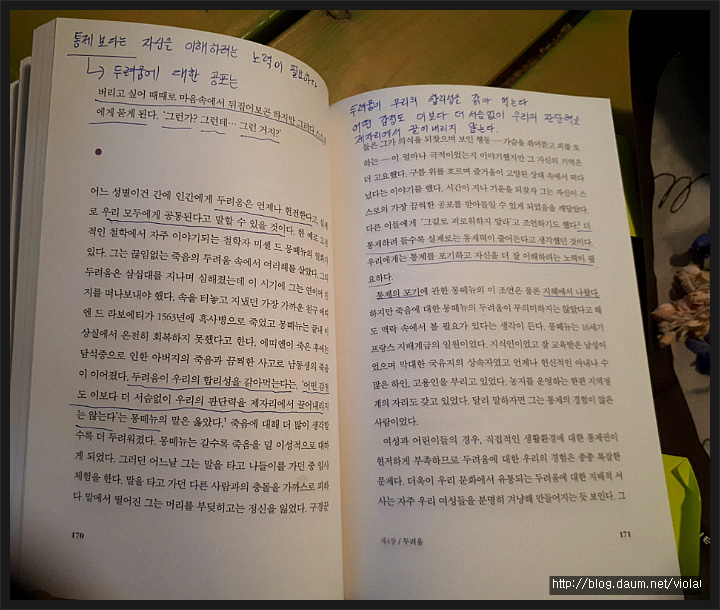 통제 보다는 자신을 이해하려는 노력이 필요하다
↳ 두려움에 대한 공포는
버리고 싶어 때때로 마음속에서 뒤집어보곤 하지만 그러다 스스로
에게 묻게 된다. ‘그런가? 그런데… 그런 거지?’
어느 성별이건 간에 인간에게 두려움은 언제나 현전한다고, 실제
로 우리 모두에게 공통된다고 말할 수 있을 것이다. 한 예로 고전
적인 철학에서 자주 이야기되는 철학자 미셸 드 몽떼뉴의 일화가
있다. 그는 끊임없는 죽음의 두려움 속에서 여러해를 살았다. 그의
두려움은 삼십대를 지나며 심해졌는데 이 시기에 그는 연이어 현
지를 떠나보내야 했다. 속을 터놓고 지냈던 가장 가까운 친구 에띠
엔 드 라보에티가 1563년에 흑사병으로 죽었고 몽떼뉴는 끝내 이
상실에서 온전히 회복하지 못했다고 한다. 에띠엔이 죽은 후에는
담석증으로 인한 아버지의 죽음과 끔찍한 사고로 남동생의 죽음
이 이어졌다. 두려움이 우리의 합리성을 갉아먹는다는, ‘어떤 감정
도 이보다 더 서슴없이 우리의 판단력을 제자리에서 끌어내리지
는 않는다’는 몽떼뉴의 말은 옳았다.¹ 죽음에 대해 더 많이 생각할
수록 더 두려워졌다. 몽떼뉴는 갈수록 죽음을 덜 이성적으로 대하
게 되었다. 그러던 어느날 그는 말을 타고 나들이를 가던 중 임사
체험을 한다. 말을 타고 가던 다른 사람과의 충돌을 가까스로 피하
다 말에서 떨어진 그는 머리를 부딪히고는 정신을 잃었다. 구경꾼
170
두려움이 우리의 합리성을 갉아 먹는다
어떤 감정도 이보다 더 서슴없이 우리의 판단력을
제자리에서 끌어내리지 않는다.
들은 그가 의식을 되찾으며 보인 행동—가슴을 쥐어뜯고 피를 토
하는—이 얼마나 극적이었는지 이야기했지만 그 자신의 기억은
더 고요했다. 구름 위를 흐르며 즐거움이 고양된 상태 속에서 떠다
녔다는 이야기를 했다. 시간이 지나 기운을 되찾자 그는 자신이 스
스로의 가장 끔찍한 공포를 받아들일 수 있게 되었음을 깨달았다.
다른 이들에게 ‘그걸로 괴로워하지 말라’고 조언하기도 했다.² 더
통제하려 들수록 실제로는 통제력이 줄어든다고 생각했던 것이다.
우리에게는 통제를 포기하고 자신을 더 잘 이해하려는 노력이 필
요하다.
통제의 포기에 관한 몽떼뉴의 이 조언은 물론 지혜에서 나왔다.
하지만 죽음에 대한 몽떼뉴의 두려움이 무의미하지는 않았다고 해
도 맥락 속에서 볼 필요가 있다는 생각이 든다. 몽떼뉴는 16세기
프랑스 지배계급의 일원이었다. 지식인이었고 잘 교육받은 남성이
었으며 막대한 국유지의 상속자였고 언제나 헌신적인 아내나 수
많은 하인, 고용인을 부리고 있었다. 농지를 운영하는 한편 지역정
계의 자리도 갖고 있었다. 달리 말하자면 그는 통제의 경험이 많은
사람이었다.
여성과 어린이들의 경우, 직접적인 생활환경에 대한 통제권이
현저하게 부족하므로 두려움에 대한 우리의 경험은 종종 복잡한
문제다. 더욱이 우리 문화에서 유통되는 두려움에 대한 지배적 서
사는 자주 우리 여성들을 분명히 겨냥해 만들어지는 듯 보인다. 그
제4장 / 두려움
171
http://blog.daum.net/viola